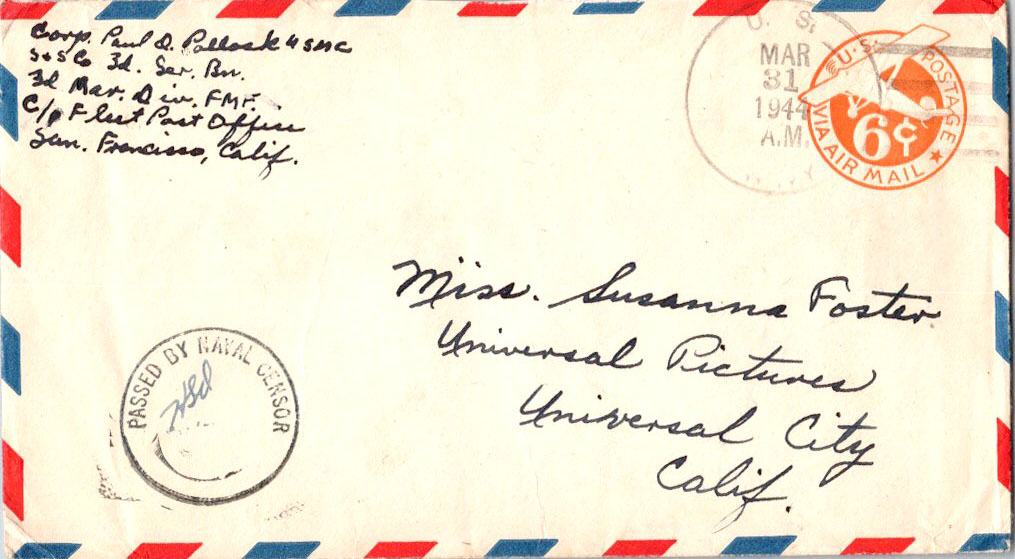 Corp. Paul D. Pollock USMC
S+S Co 3d. Ser. Bn.
3d Mar. Div. FMF.
C/o Fleet Post Office
San. Francisco, Calif.
U. S.
MAR
31
1944
A.M.
U.S. POSTAGE
6¢
VIA AIR MAIL
Miss. Susanna Foster
Universal Pictures
Universal City
Calif.
PASSED BY NAVAL CENSOR